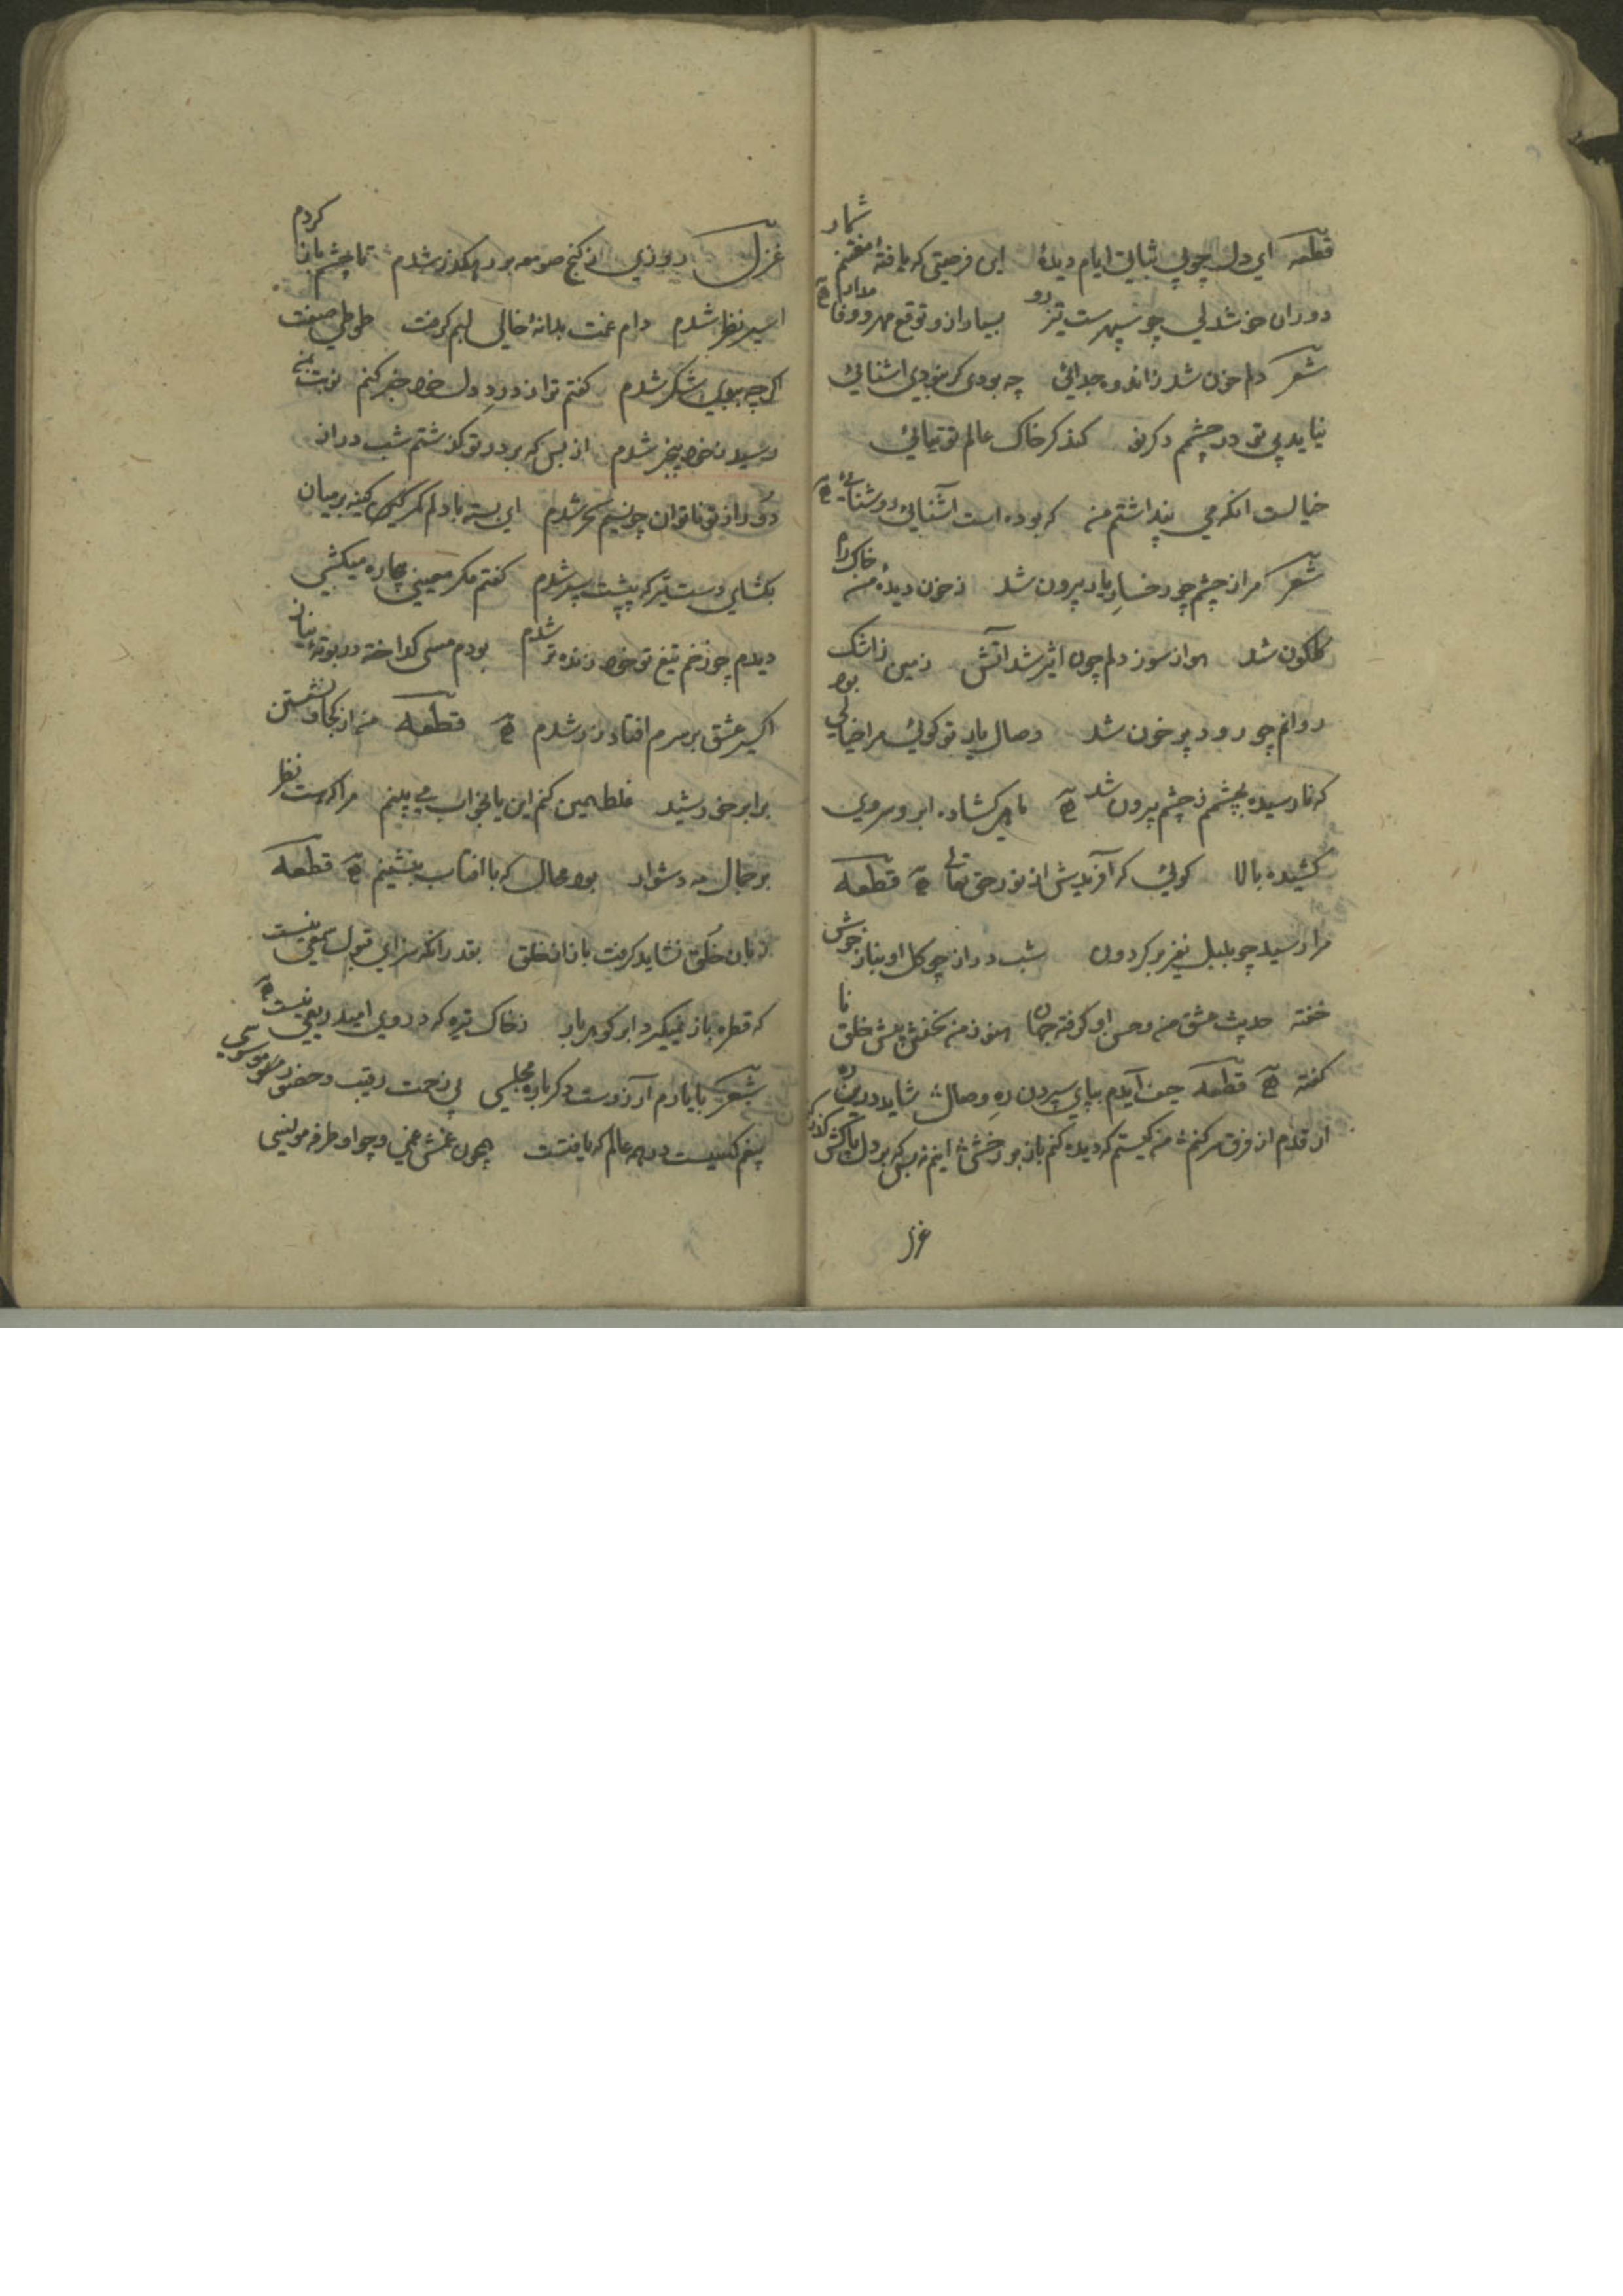 قطعه ای دل چو بی ثباتی ایام دیدهٔ این فرصتی که یافتهٔ مغتنم شمار
دوران خوشدلی چو سپهرست تیز رو بسیار ازو توقع مهر و وفا مدار
شعر دلم خون شد ز اندوه جدائی چه بودی کر نبودی اشنائی
نیاید بی تو در چشم دکر نو کند کر خاک عالم توتیائی
خیالست انکه می پنداشتم من که بوده است آشنائی روشنائی
شعر مرا ز چشم چو رخسار یار بیرون شد ز خون دیدهٔ من خاک راه
کلکون شد هوا ز سوز دلم چون اثیر شد اتش زمین ز اشک
روانم چو رود پر خون شد وصال یار تو کوئی مرا خیالی بود
که نا رسیده بچشم ز چشم بیرون شد ماهی کشاده ابرو سروی
کشیده بالا کوئی که آفریدش از نور حق تعالی قطعه
مرا رسید چو بلبل نفیر بر کردون شب دراز چو کل او بناز خوش
خفته حدیث عشق من و حسن او کرفته جهان هنوز من نخفتش پیش خلق نا
کفته قطعه حیف آیدم بپای سپردن ره وصال شاید درین ره
از قدم از فرق سر کنم من کیستم که دیده کنم باز بر رخش اینم نه بس که بر دل پاکش کذر کنم
غزل
غزل روزی ز کنج صومعه بر رهکذر شدم تا چشم باز کردم
اسیر نظر شدم دام غمت بدانهٔ خالی دلم کرفت طوطی صفت
اکرچه ببوی شکر شدم کفتم ترا ز درد دل خود خبر کنم نوبت بمن
رسید ز خود بیخبر شدم از بس که بر در تو کذشتم شب دراز
دور از تو ناتوان چو نسیم سحر شدم ای بسته با دلم کمر کین کینه بر میان
بکشای دست تیر که پیشت سپر شدم کفتم مکر معینی بیچاره میکشی
دیدم چو زخم تیغ تو خود زنده تر شدم بودم مسی کداخته در بوتهٔ نیاز
اکسیر عشق بر سرم افتاد زر شدم قطعه من از کجا و نشستن
برابر خورشید غلط همین کنم این یا بخواب می بینم مرا که هست نظر
بر جمال مه دشوار بود محال که با افتاب بنشینم قطعه
زبان خلق نشاید کرفت با ناخلق بقدر انکه سزای قبول سمعی نیست
که قطره باز نمیکیرد ابر کوهربار ز خاک تیره که در وی امید ریعی نیست
شعر با یارم آرزوست دکرباره مجلسی بی زحمت رقیب و حضور موسوسی
بیغم کسیست در همه عالم که یافتست همچون غمش غمی و چو او طرفه مونسی